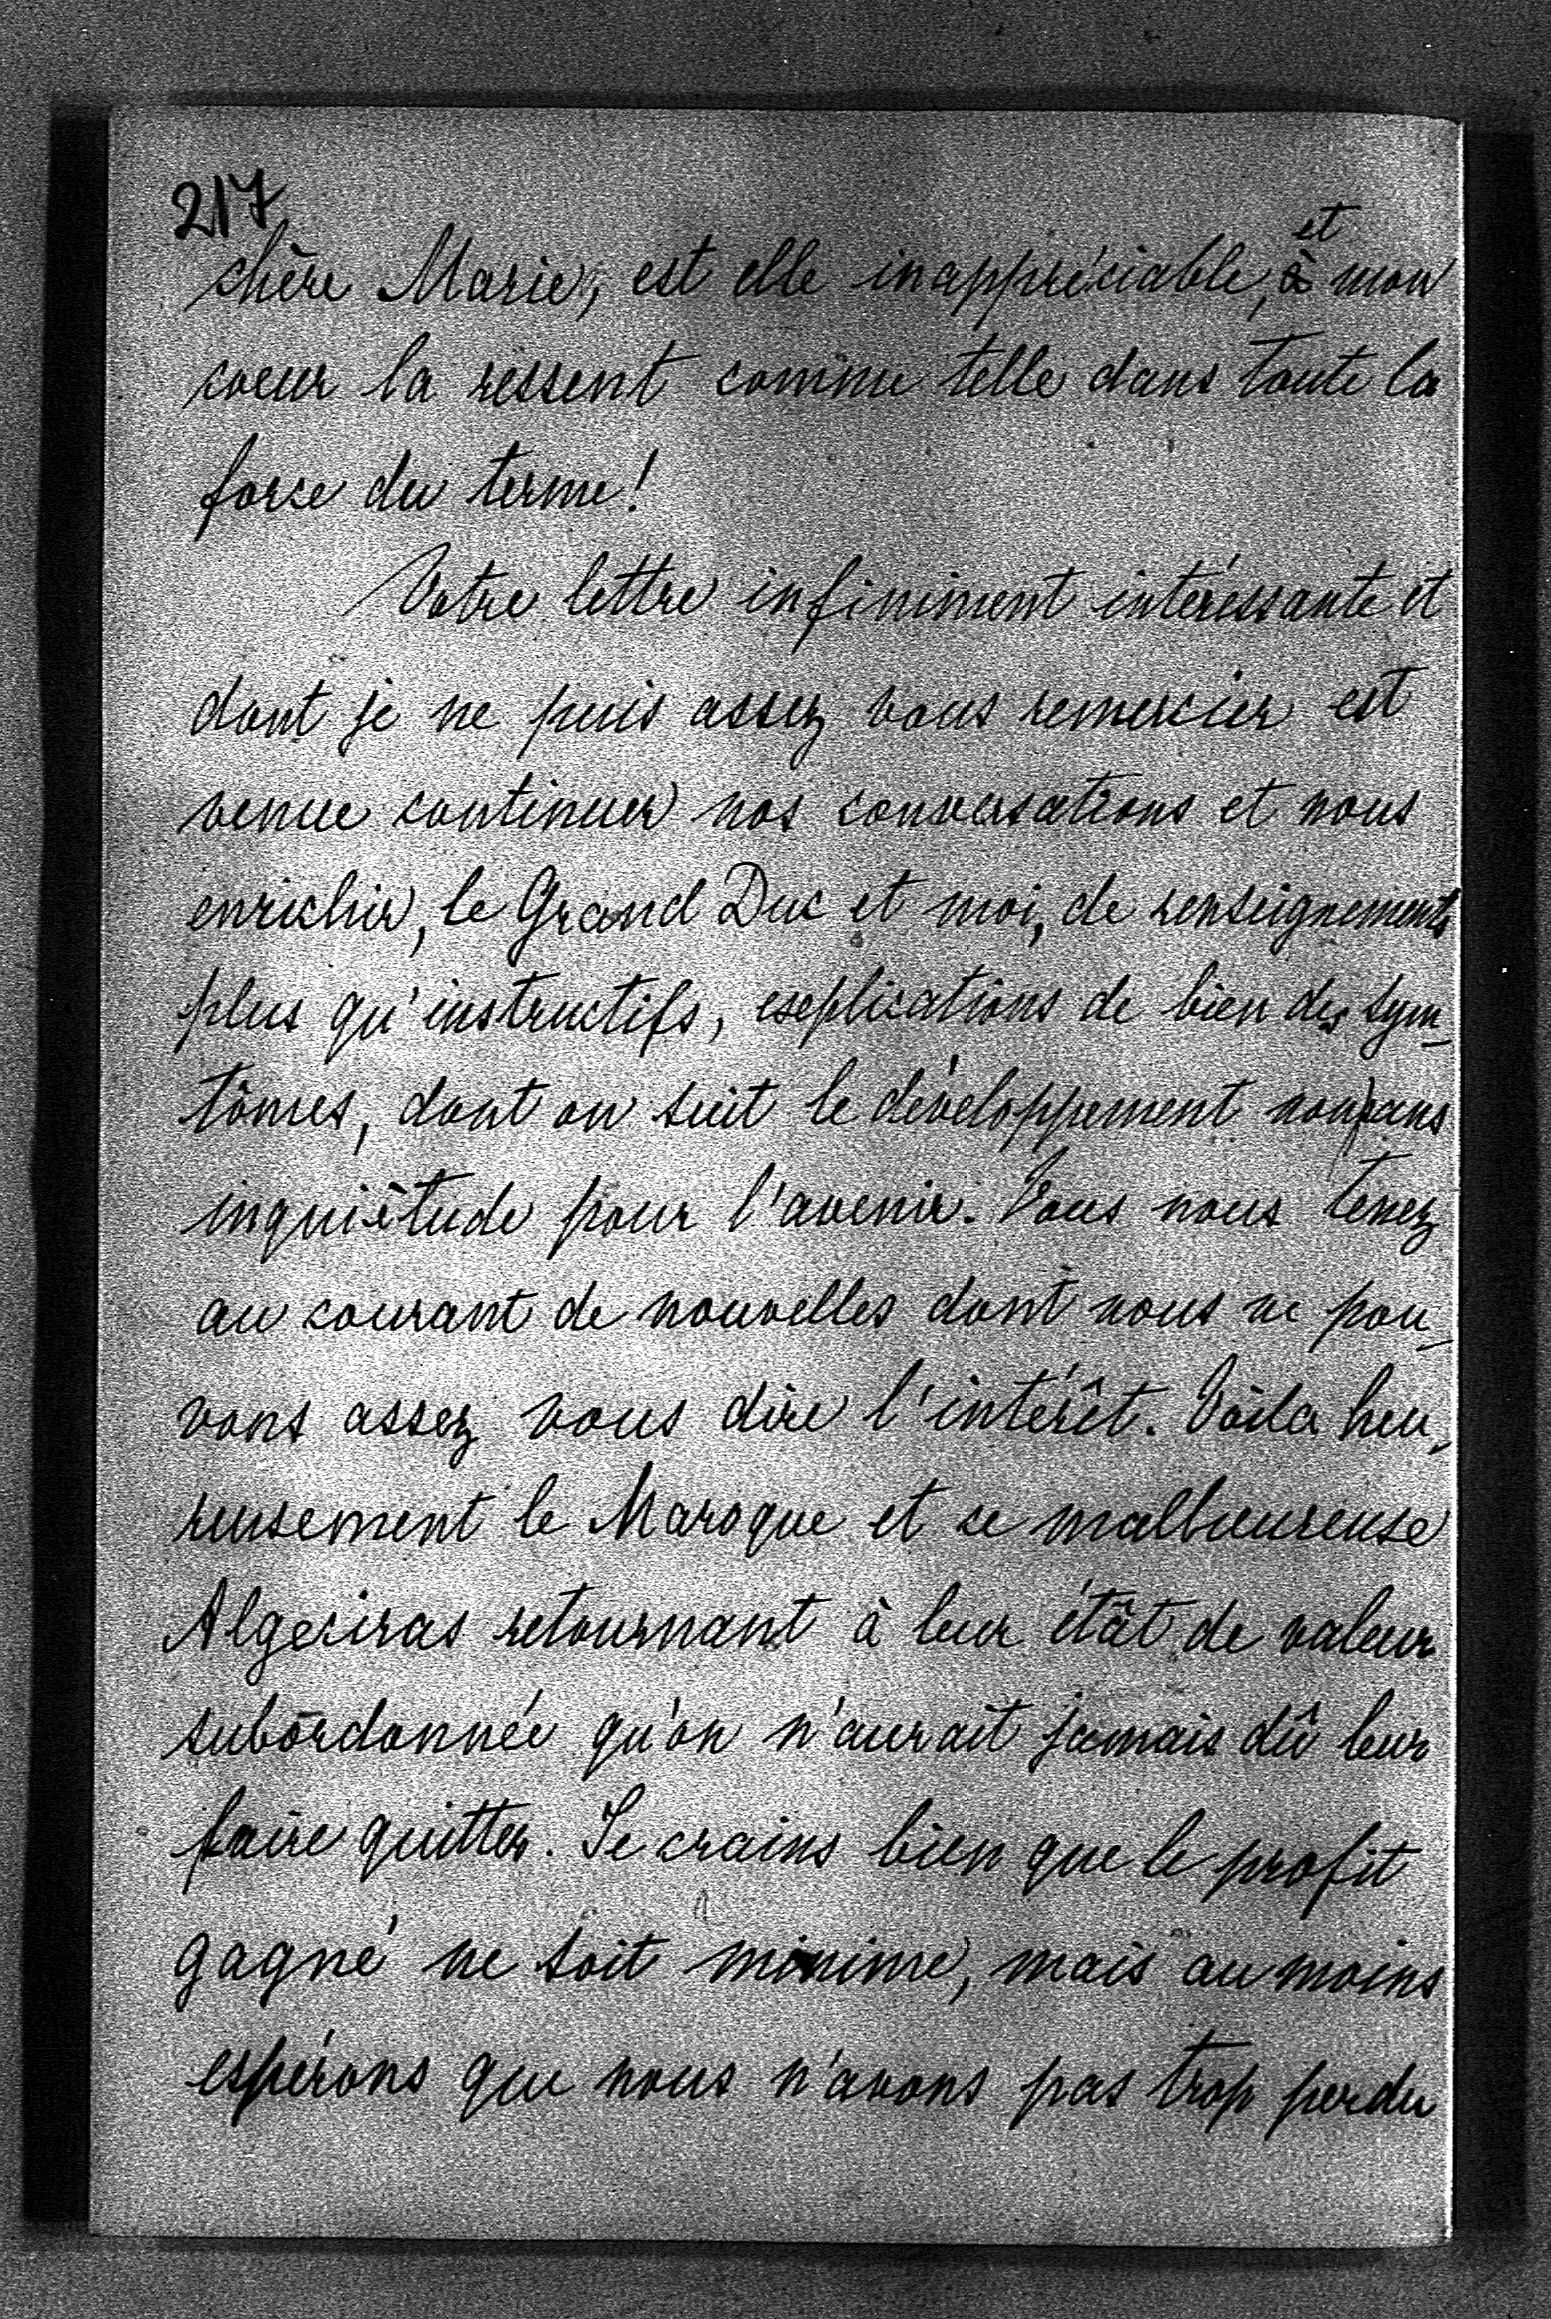 217
et
chère Marie, est elle inappréciable, à mon
coeur la ressent comme telle dans toute la
force du terme!
Votre lettre infiniment intéressante et
dont je ne puis assez vous remercier est
venue continuer nos conversations et nous
enrichir, le Grand Duc et moi, de renseignements
plus qu'instructifs, explications de bien des sym-
tômes, dont on suit le développement non sans
inquiètude pour l'avenir. Vous nous tenez
au courant de nouvelles dont nous ne pou-
vons assez vous dire l'intérêt. Voila heu-
reusement le Maroque et ce malheureuse
Algeciras retournant à leur étât de valeur
subordonnée qu'on n'aurait jamais dû leur
faire quitter. Je crains bien que le profit
gagné ne soit minime, mais au moins
espérons que nous n'avons pas trop perdu